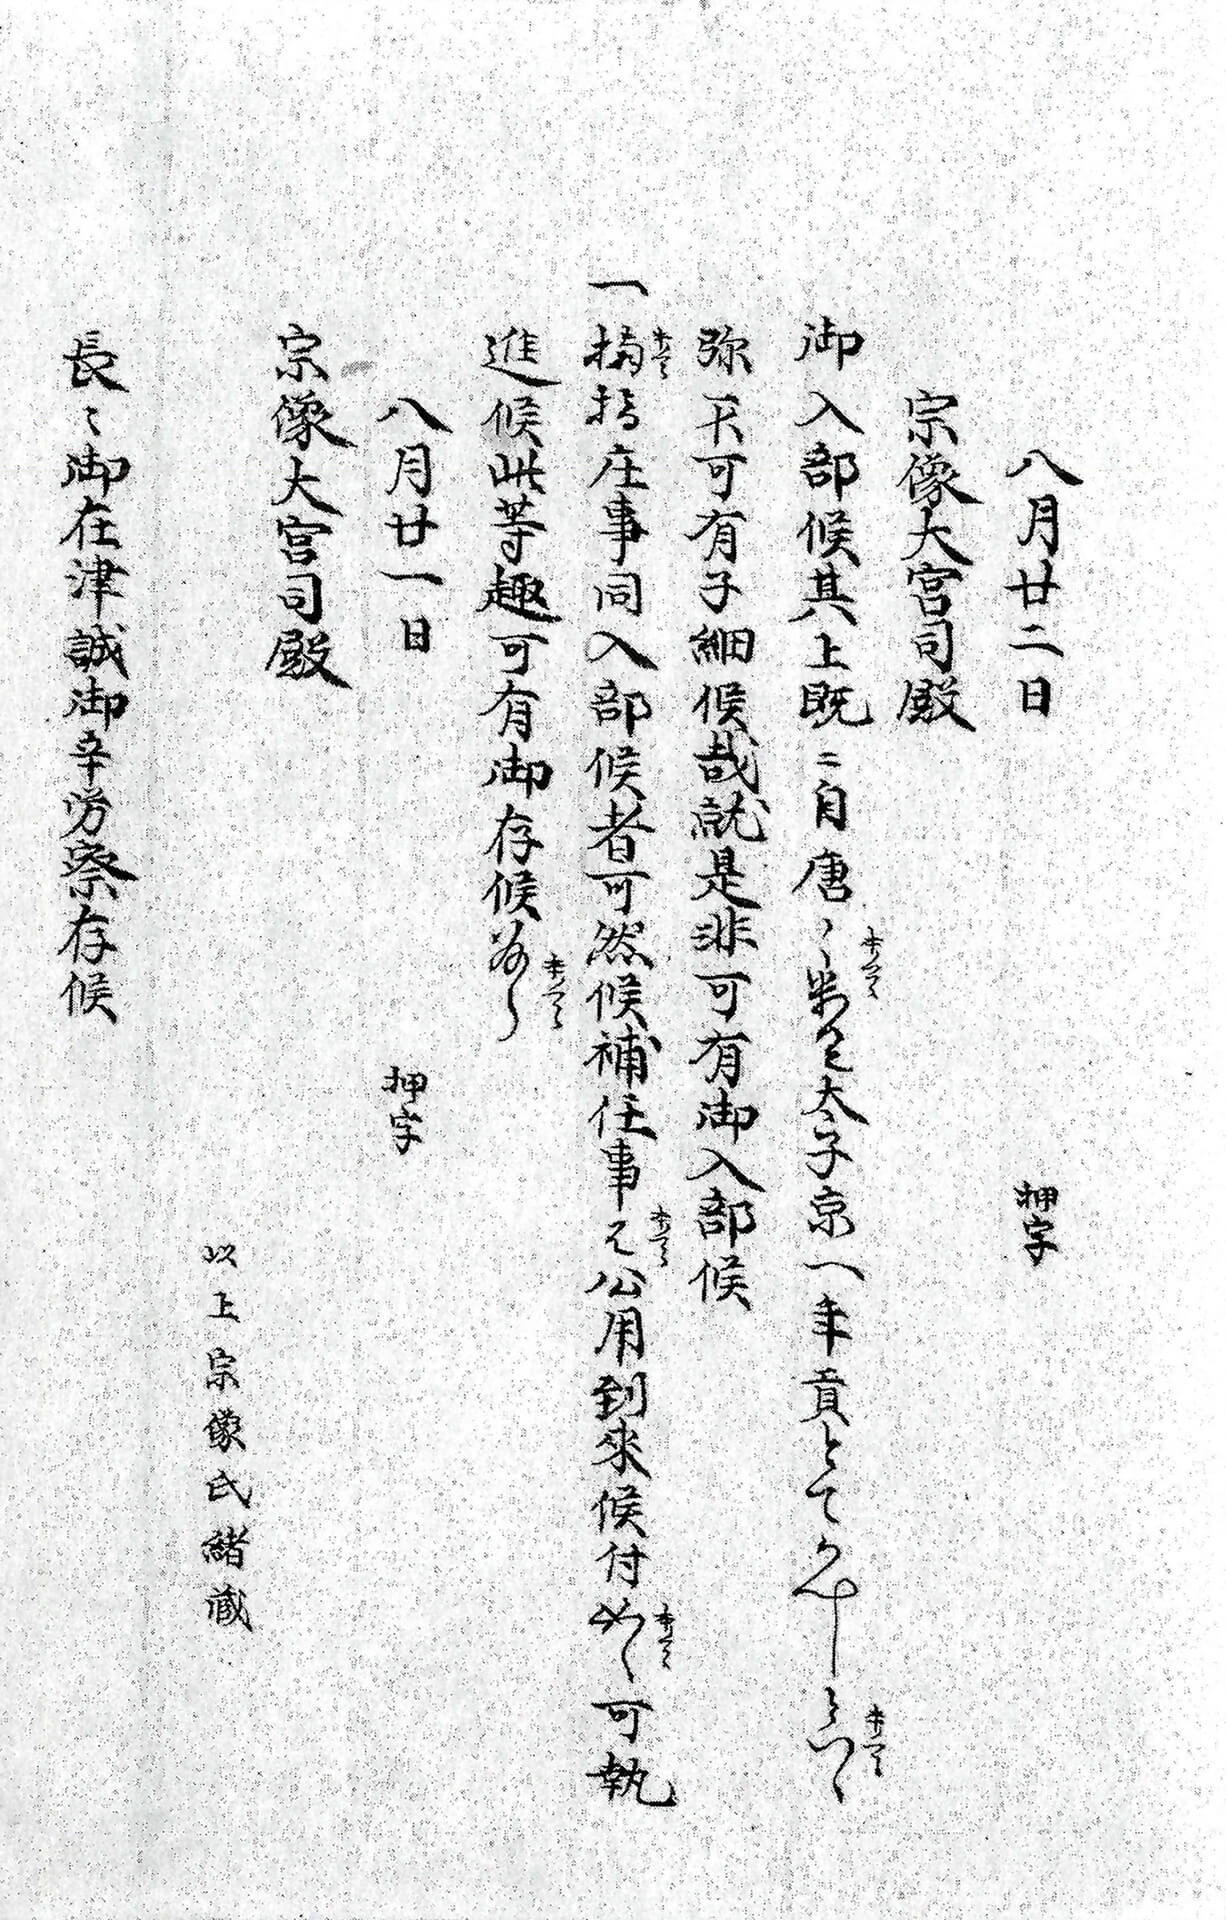 八月廿二日　押字
宗像大宮司殿
御入部候其上既ニ自唐〻太子京へ年貢とて
弥不可有子細候哉就是非可有御入部候
一楠橋庄事同入部候者可然候補任事ハ公用到來候付可執
進候此等趣可有御存候
八月廿一日　押字
宗像大宮司殿
以上宗像氏緒蔵
長〻御在津誠御辛労察存候